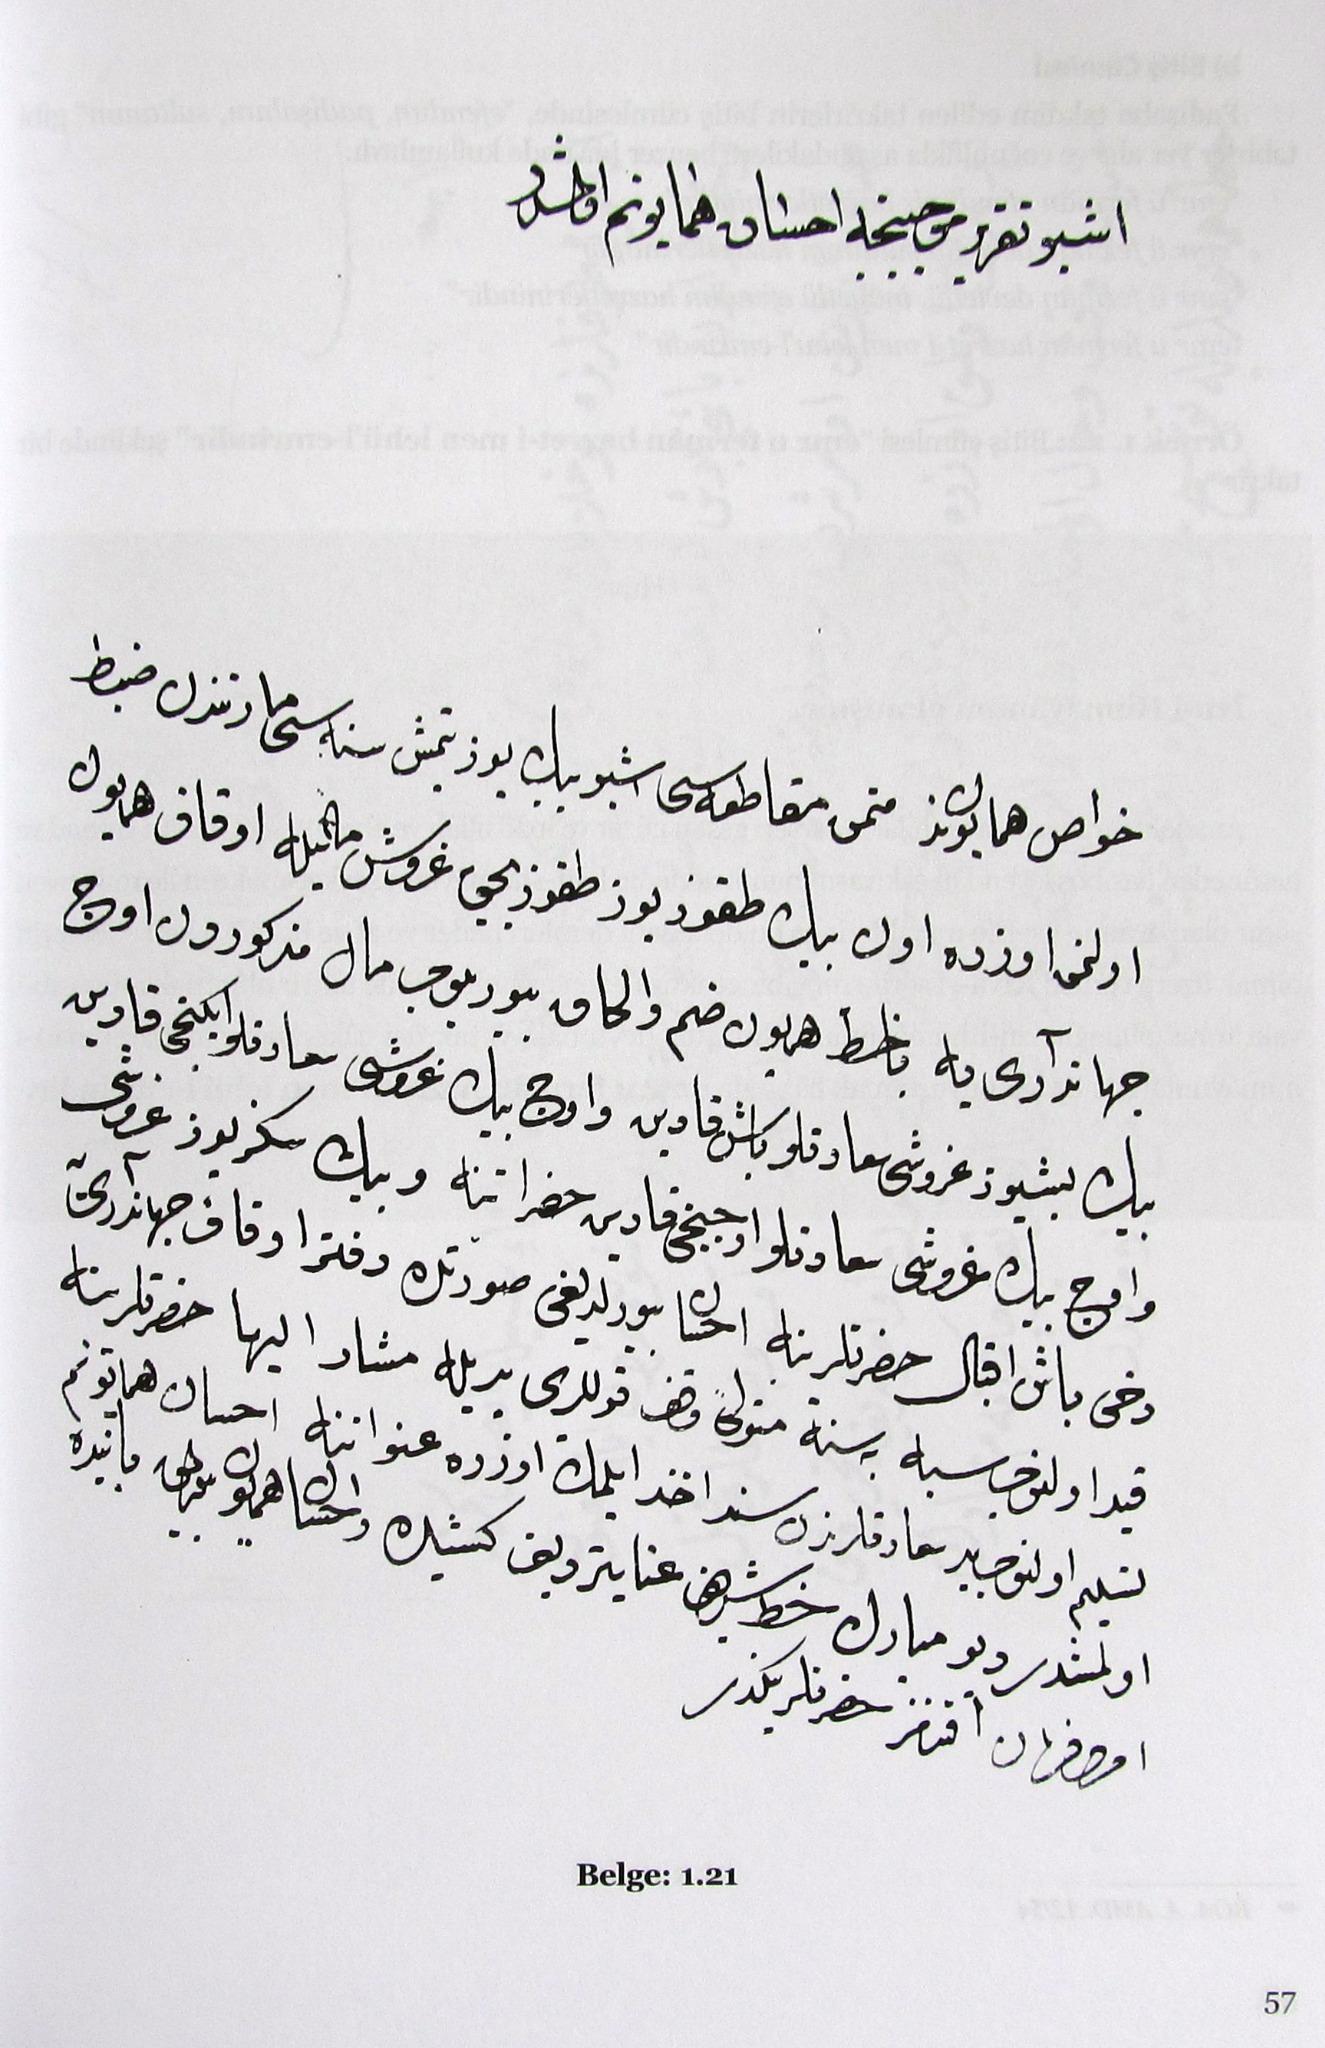 اشبو تقرير موجبنجه احسان همايونم اولمشدر
خواص همايوندن متمن مقاطعه سی اشبو بيك يوز يتمش سنه سی مارتندن ضبط
اولنمق اوزره اون بيك طقوز يوز طقوز بچق غروش ماليله اوقاف همايون
جهاندارى يه باخط همايون ضم والحاق بيوريلوب مال مذكوردن اوچ
بيك بشيوز غروشى سعادتلو باش قادين واوچ بيك غروشى سعادتلو ايكنجى قادين
واوچ بيك غروشى سعادتلو اوچنجى قادين حضراتنه وبيك سكز يوز غروشى
دخى باش اقبال حضرتلرينه احسان بيورلديغى صورتده دفتر اوقاف جهانداريه
قيد اولنوب سنه به سنه متولئ وقف قوللرى يديله مشار اليها حضرتلرينه
تسليم اولنوب يد سعادتلرندن سند اخذ ايلمك اوزره عنواننه احسان همايونم
اولمشدر ديو مبارك خط شريف عنايترديف كشيده واحسان همايون بيورلمق بابنده
امر وفرمان افندمز حضرتلريكدر
Belge: 1.21
57